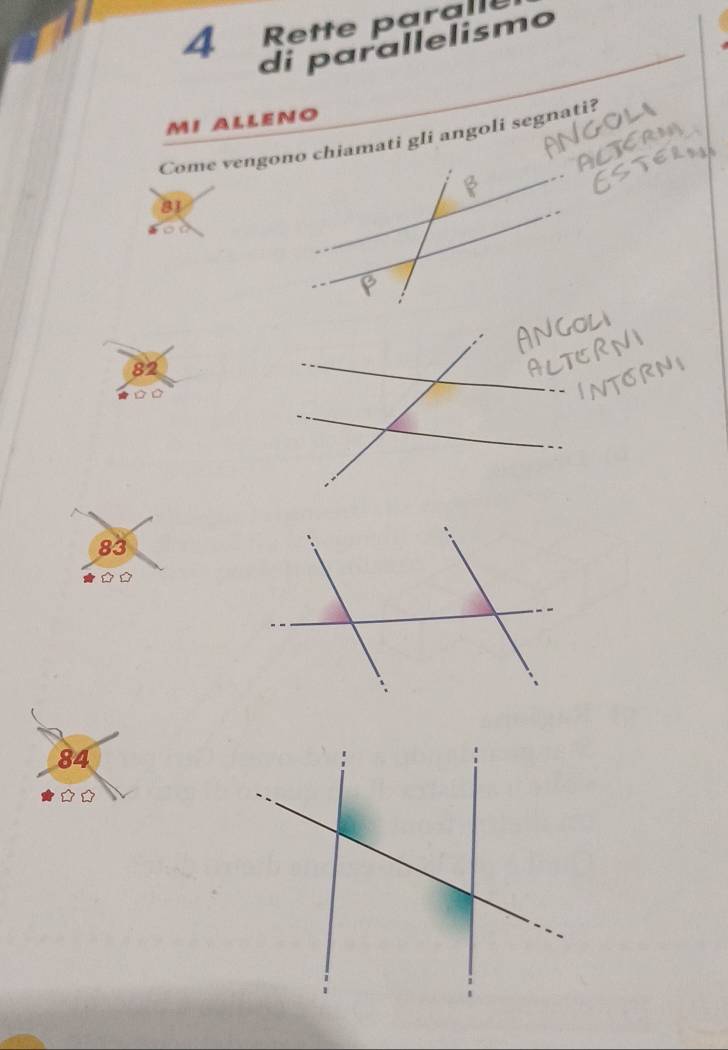 4 Rette paralle
di parallelismo
MI ALLENO
Come vengono chiamati gli angoli segnati?
ANGOLI
ALTERNI
ESTERNI
81
β
β
82
ANGOLI
ALTERNI
INTERNI
83
84